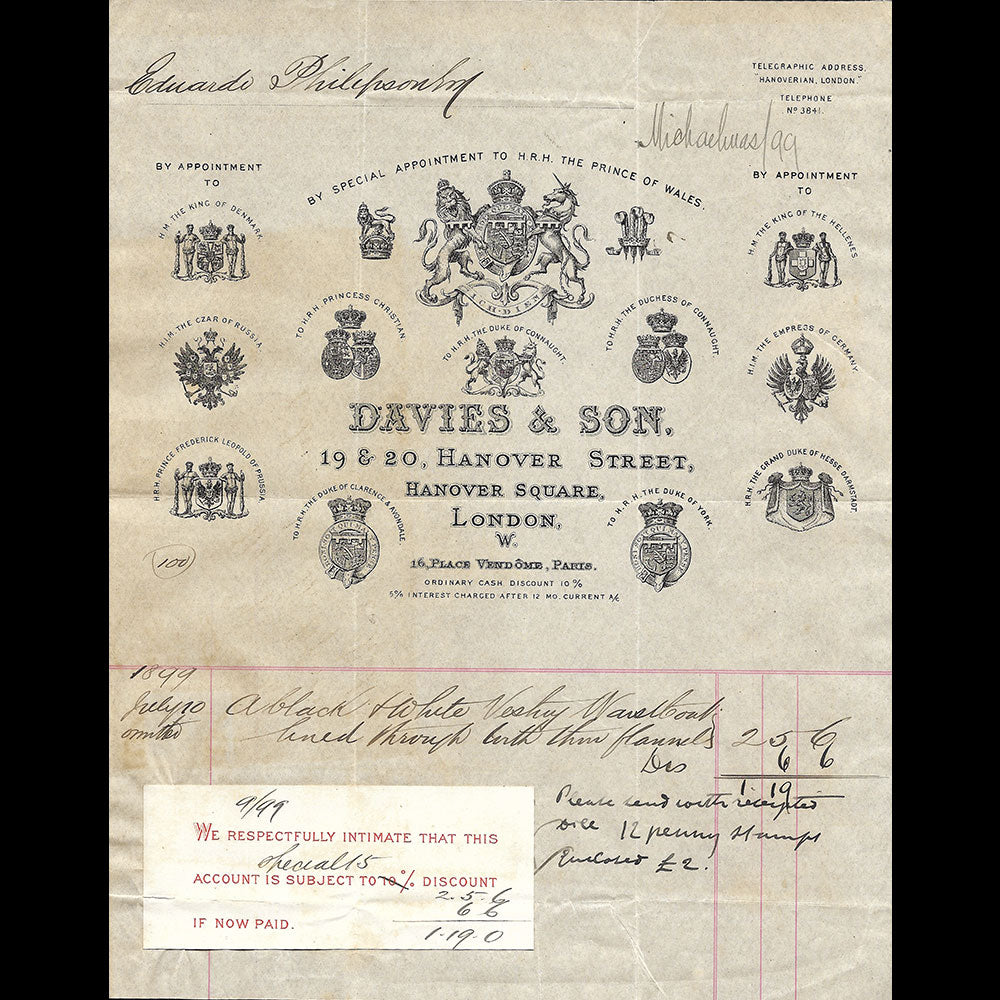 Eduardo Philipson Esq
TELEGRAPHIC ADDRESS.
"HANOVERIAN, LONDON."
TELEPHONE
Nº 3841.
Michaelmas/99
BY APPOINTMENT
TO
BY SPECIAL APPOINTMENT TO H.R.H. THE PRINCE OF WALES.
BY APPOINTMENT
TO
H.M. THE KING OF DENMARK.
ICH DIEN
H.M. THE KING OF THE HELLENES
H.I.M. THE CZAR OF RUSSIA.
TO H.R.H. PRINCESS CHRISTIAN
TO H.R.H. THE DUKE OF CONNAUGHT.
TO H.R.H. THE DUCHESS OF CONNAUGHT.
H.I.M. THE EMPRESS OF GERMANY.
DAVIES & SON,
19 & 20, HANOVER STREET,
HANOVER SQUARE,
LONDON,
W.
16, PLACE VENDÔME, PARIS.
H.R.H. PRINCE FREDERICK LEOPOLD OF PRUSSIA.
TO H.R.H. THE DUKE OF CLARENCE & AVONDALE.
TO H.R.H. THE DUKE OF YORK.
H.R.H. THE GRAND DUKE OF HESSE DARMSTADT.
100
ORDINARY CASH DISCOUNT 10%
5% INTEREST CHARGED AFTER 12 MO. CURRENT A/C
1899
July 20 A black & White Vestry Waistcoat
omitted lined through with thin flannel 2 5 6
Dis 6 6
1 19
Please send with receipted
bill 12 penny stamps
Enclosed £2.
9/99
WE RESPECTFULLY INTIMATE THAT THIS
special 15
ACCOUNT IS SUBJECT TO 10 % DISCOUNT
2.5.6
6 6
IF NOW PAID.
1.19.0